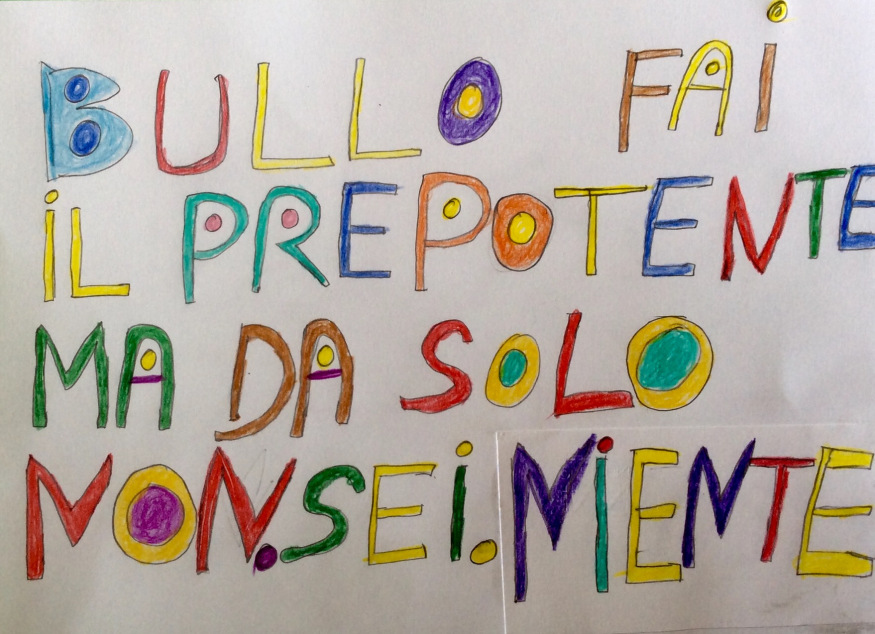 BULLO FAI
IL PREPOTENTE
MA DA SOLO
NON.SEI.NIENTE